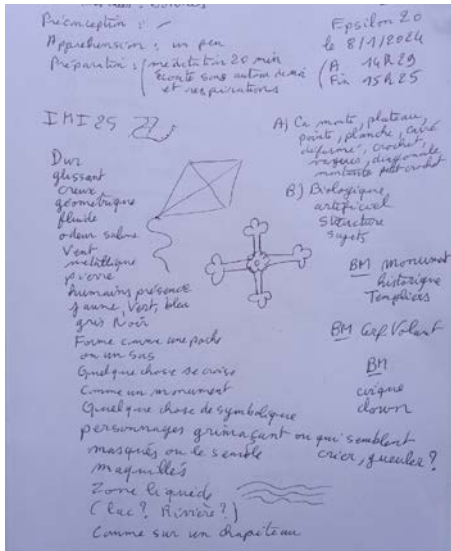 Préconception : -
Appréhension : un peu
Préparation : méditation 20 min
Ecoute sons autour de moi
et respirations
Epsilon 20
le 8/1/2024
14h29
Fin 15h25
A) Ca monte, plateau,
pointe, planche, carré
déformé, crochet,
vagues, diagonale
montante petit crochet
B) Biologique,
artificiel
structure
sujets
Dur
glissant
creux
géométrique
fluide
odeur saline
Vent
métallique
pierre
humains présence
jaune, vert, bleu
gris Noir
Forme comme une poche
ou un sas
Quelque chose se croise
Comme un monument
Quelque chose de symbolique
personnages grimaçant ou qui semblent
crier, gueuler ?
masqués ou le semble
maquillés
Zone liquide
(lac ? Rivière ?)
Comme sur un chapiteau
BM monument
historique
Templiers
BM Cerf Volant
BM
cirque
clown